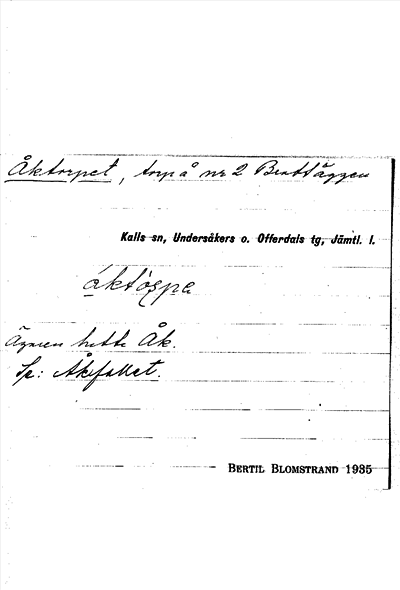 Åktorpet, torp å nr 2 Brattäggen
Kalls sn, Undersåkers o. Offerdals tg, Jämtl. l.
åktoṣpa
Ägaren hette Åk.
Se: Åkfallet.
BERTIL BLOMSTRAND 1935